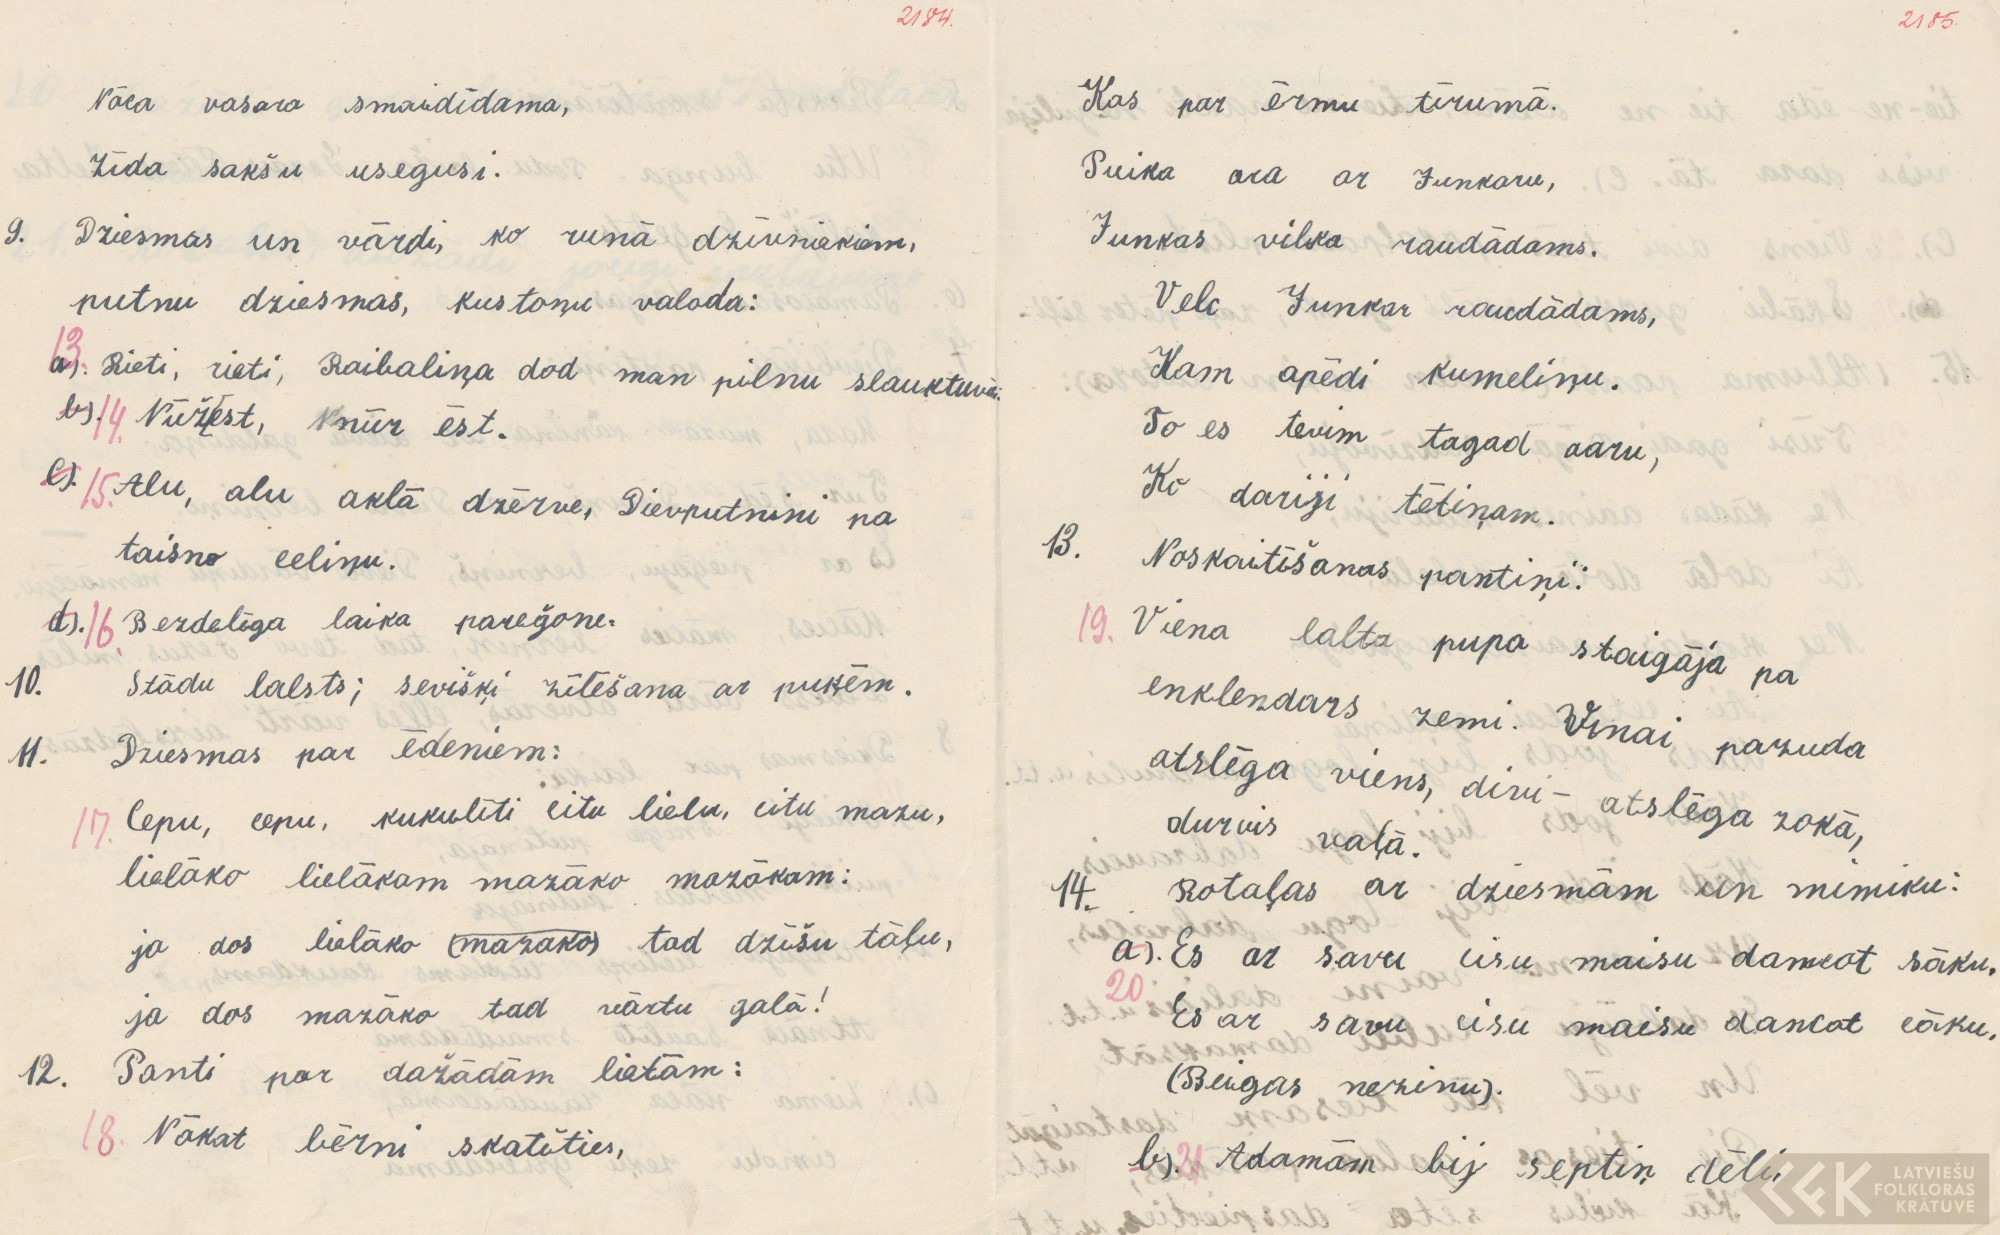 2184.
Nāca vasara smaididama,
Zīda sakšu usegusi.
9. Dziesmas un vārdi, ko runā dzīvniekiem,
putnu dziesmas, kustoņu valoda:
13.
a). Rieti, rieti, Raibaliņa dod man pilnu slauktuvi.
b). 14. Nūžēst, Knūr ēst.
c). 15. Alu, alu aklā dzērve, Dievputnini pa
taisno celiņu.
d). 16. Bezdelīga laika pareģone.
10. Stādu lalsts; seviški zīlēšana ar puķēm.
11. Dziesmas par ēdeniem:
17. Cepu, cepu, kukulīti citu lielu, citu mazu,
lielāko lielākam mazāko mazākam:
ja dos lielāko (mazako) tad dzīšu tāļu,
ja dos mazāko tad vārtu galā!
12. Panti par dažādām lietām:
18. Nākat bērni skatīties,
2185.
Kas par ērmu tīrumā.
Puika ara ar Junkaru,
Junkas vilka raudādams.
Velc Junkar raudādams,
Kam apēdi kumeliņu.
To es tevim tagad daru,
Ko dariji tētiņam.
13. Noskaitīšanas pantiņi:
19. Viena lalta pupa staigāja pa
enklendars zemi. Viņai pazuda
atslēga viens, divi - atslēga rokā,
durvis vaļā.
14. Rotaļas ar dziesmām un mimiku:
a). Es ar savu cisu maisu dancot sāku.
20
Es ar savu cisu maisu dancot cāku.
(Beigas nezinu).
b). 21 Adamām bij septiņ dēli,
LATVIEŠU
FOLKLORAS
KRĀTUVE